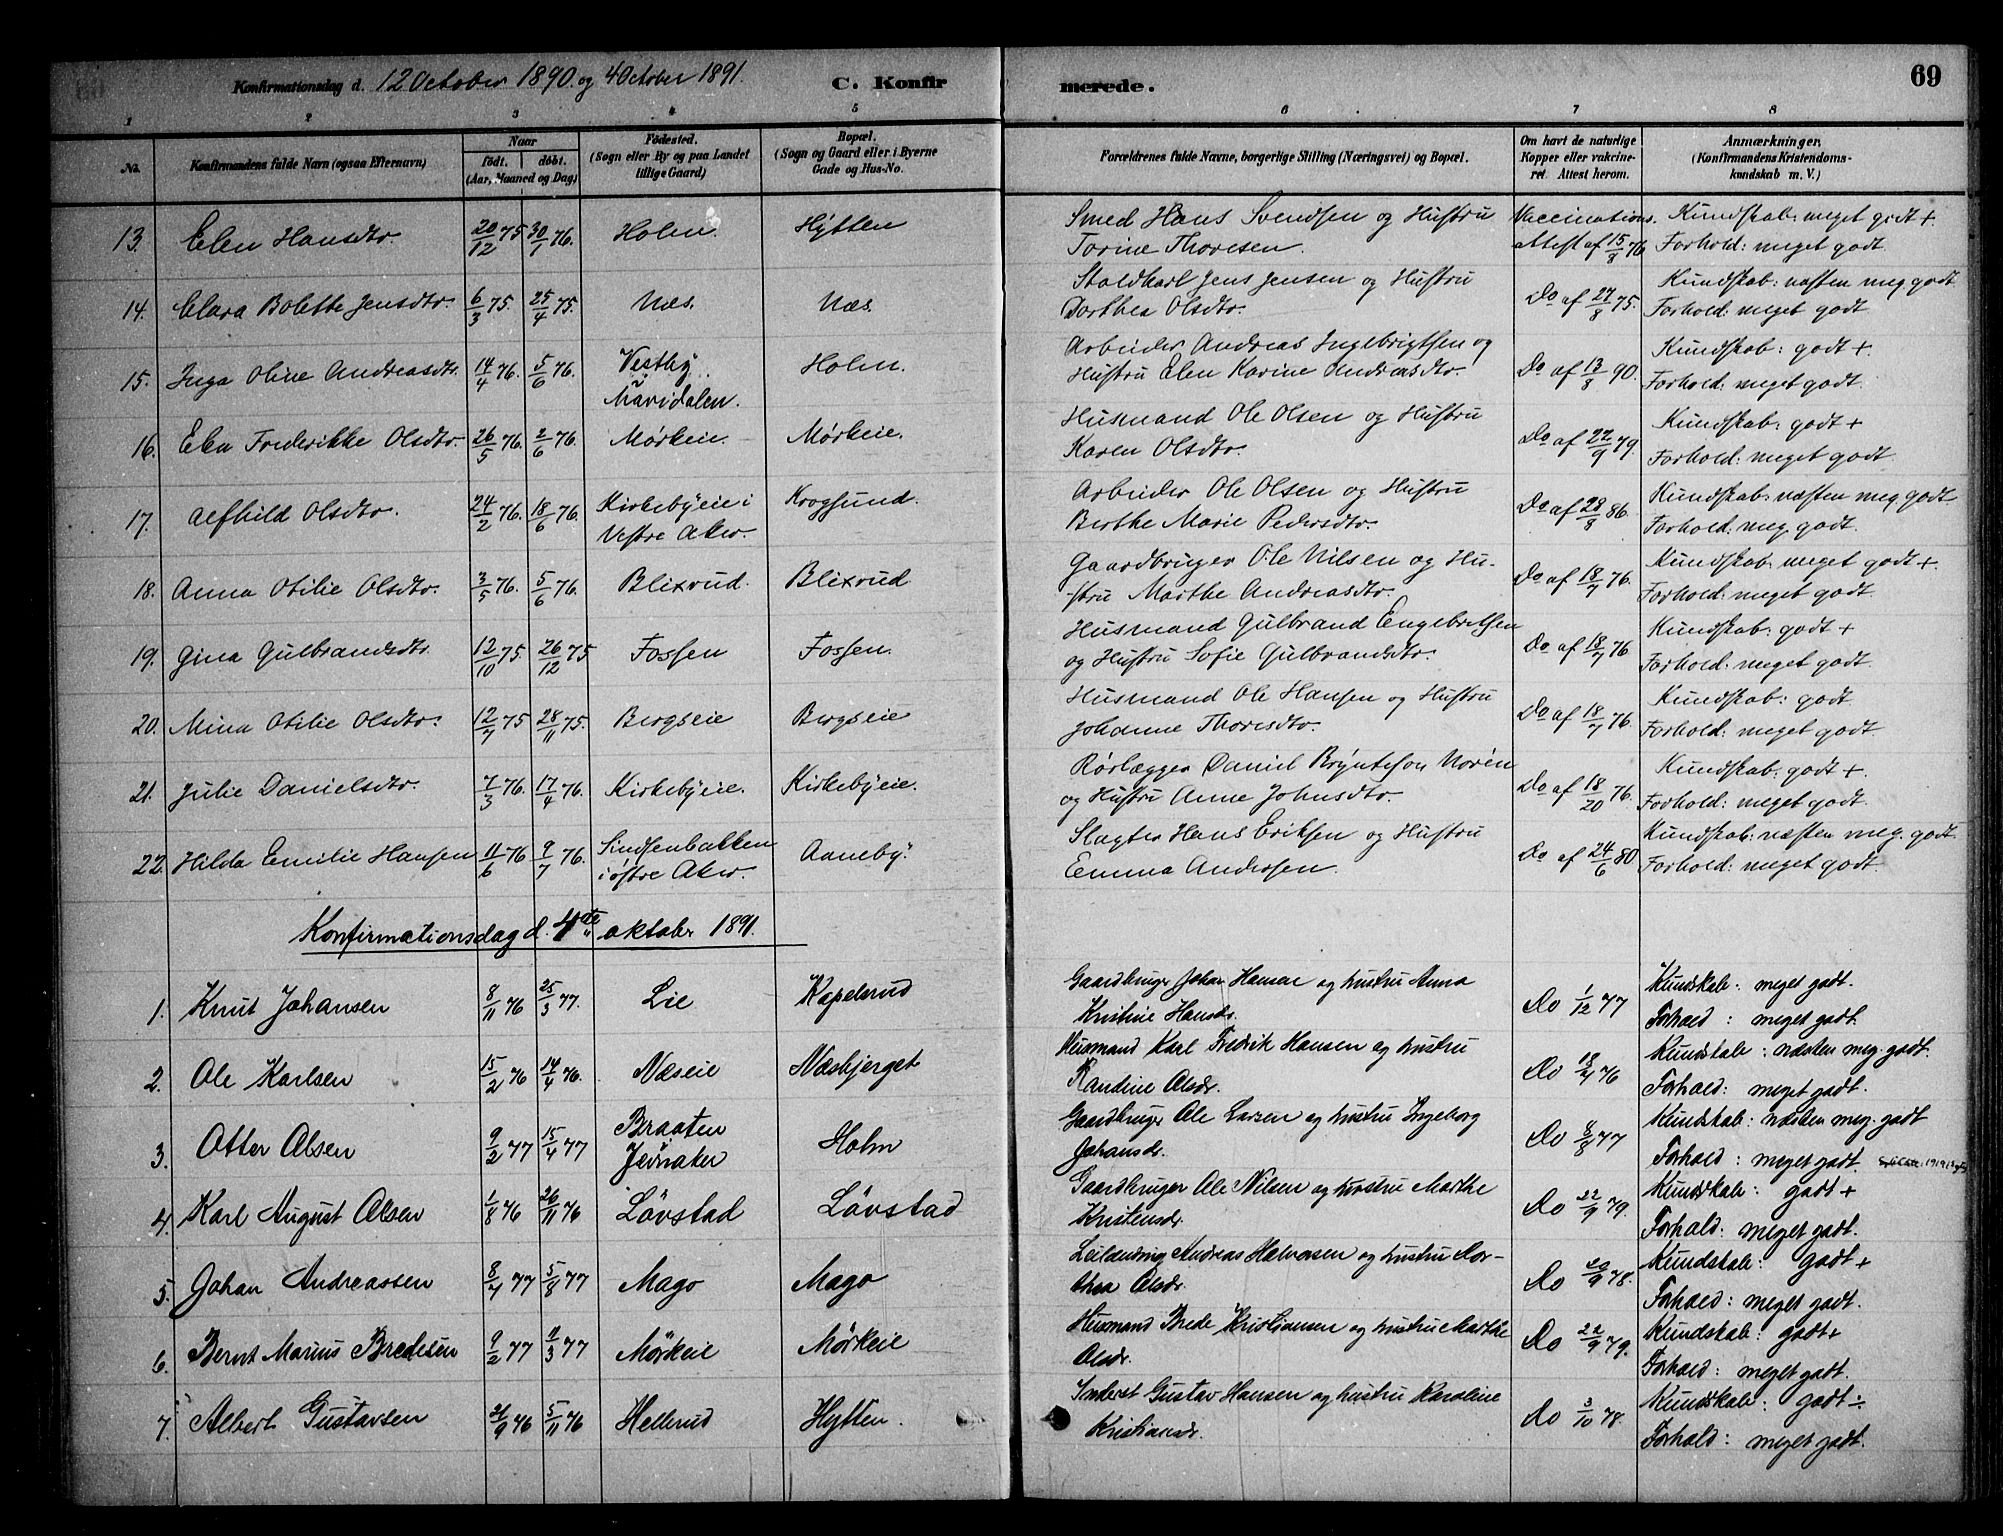 Konfirmationsdag d. 12 October 1890. og 4 October 1891. C. Konfir merede. 69
1 2 3 4 5 6 7 8
No. Konfirmandens fulde Navn (ogsaa Efternavn) Naar født. døbt. (Aar, Maaned og Dag) Fødested. (Sogn eller By og paa Landet tillige Gaard) Bopæl. (Sogn og Gaard eller i Byerne Gade og Hus-No. Forældrenes fulde Navne, borgerlige Stilling (Næringsvei) og Bopæl. Om havt de naturlige Kopper eller vakcineret. Attest herom. Anmærkninger. (Konfirmandens Kristendomskundskab m. V.)
13. Elen Hansdtr. 20/12 75 30/1 76. Holm. Hytten Smed Hans Svendsen og Hustru Vaccinations. Kundskab: meget godt +
Torine Thoresen. attest af 15/8 76 Forhold: meget godt
14. Clara Bolette Jensdtr. 6/3 75. 25/4 75. Næs. Næs. Staldkarl Jens Jensen og Hustru Do af 27/8 75. Kundskab: næsten meg godt
Dorthea Olsdtr. Forhold: meget godt
15. Inga Oline Andreasdtr. 14/4 76. 5/6 76. Vestby Holm. Arbeider Andreas Ingebrigtsen og Do af 13/8 90. Kundskab: godt +.
Maridalen. Hustru Elen Karine Andreasdtr. Forhold: meget godt.
16. Elea Frederikke Olsdtr. 26/5 76. 2/6 76. Mørkeie. Mørkeie. Husmand Ole Olsen og Hustru Do af 22/9 79. Kundskab: godt +
Karen Olsdtr. Forhold: meget godt.
17. Alfhild Olsdtr. 24/2 76. 18/6 76. Kirkebyeie i Krogsund. Arbeider Ole Olsen og Hustru Do af 28/8 86. Kundskab: næsten meg. godt
Vestre Aker. Berthe Marie Pedersdtr. Forhold: meg. godt.
18. Anna Otilie Olsdtr. 3/5 76. 5/6 76. Blixrud. Blixrud Gaardbruger Ole Nilsen og Hu- Do af 18/7 76. Kundskab: meget godt +.
stru Marthe Andreasdtr. Forhold: meget godt.
19. Gina Gulbrandsdtr. 12/10 75. 26/12 75 Fossen Fossen. Husmand Gulbrand Engebretsen Do af 18/7 76 Kundskab: godt +
og Hustru Sofie Gulbrandsdtr. Forhold: meget godt.
20. Mina Otilie Olsdtr. 12/7 75 28/11 75. Bergseie Bergseie Husmand Ole Hansen og Hustru Do af 18/7 76. Kundskab: godt.
Johanne Thoresdtr. Forhold: meget godt
21. Julie Danielsdtr. 7/3 76. 17/4 76. Kirkebyeie. Kirkebyeie. Rørlægger Daniel Brynteson Norén Do af 18/20 76. Kundskab: godt +.
og Hustru Anne Johnsdtr. Forhold: meget godt.
22. Hilda Emilie Hansen 11/6 76 9/7 76. Sindsenbakken Aaneby. Slagter Hans Eriksen og Hustru Do af 24/6 80 Kundskab: næsten meg. godt
i østre Aker. Emma Andersen. Forhold: meget godt.
Konfirmationsdag d. 4de oktober 1891.
1. Knut Johansen 8/11 76 25/3 77. Lie Kapelrud Gaardbruger Johan Hansen og hustru Anna Do 1/12 77 Kundskab: meget godt.
Kristine Hansdr. Forhold: meget godt.
2. Ole Karlsen 15/2 76 14/4 76. Næseie Næsbjerget Husmand Karl Fredrik Hansen og hustru Do 18/4 76 Kundskab: næsten meg. godt.
Randine Olsdr. Forhold: meget godt.
3. Otter Olsen 9/2 77 15/4 77 Braaten Holm Gaardbruger Ole Larsen og hustru Ingeborg Do 8/8 77 Kundskab: næsten meg. godt
Jevnaker Johansdr. Forhold: meget godt.
4. Karl August Olsen 1/8 76 26/11 76 Lövstad Lövstad Gaardbruger Ole Nilsen og hustru Marthe Do 22/9 79. Kundskab: godt +
Kristensdr. Forhold: meget godt.
5. Johan Andreassen 8/4 77 5/8 77 Mago Mago Leilænding Andreas Halvorsen og hustru Dor- Do 20/9 78. Kundskab: godt +
thea Olsdr. Forhold: meget godt.
6. Bernt Marius Bredesen 9/2 77 4/3 77 Mörkeie Mörkeie Husmand Brede Kristiansen og hustru Marthe Do 22/9 79. Kundskab: godt +
Olsdr. Forhold: meget godt.
7. Albert Gustavsen 21/9 76 5/11 76 Hellerud Hytten. Inderst Gustav Hansen og hustru Karoline Do 3/10 78. Kundskab: godt ÷
Kristiansdr. Forhold: meget godt.